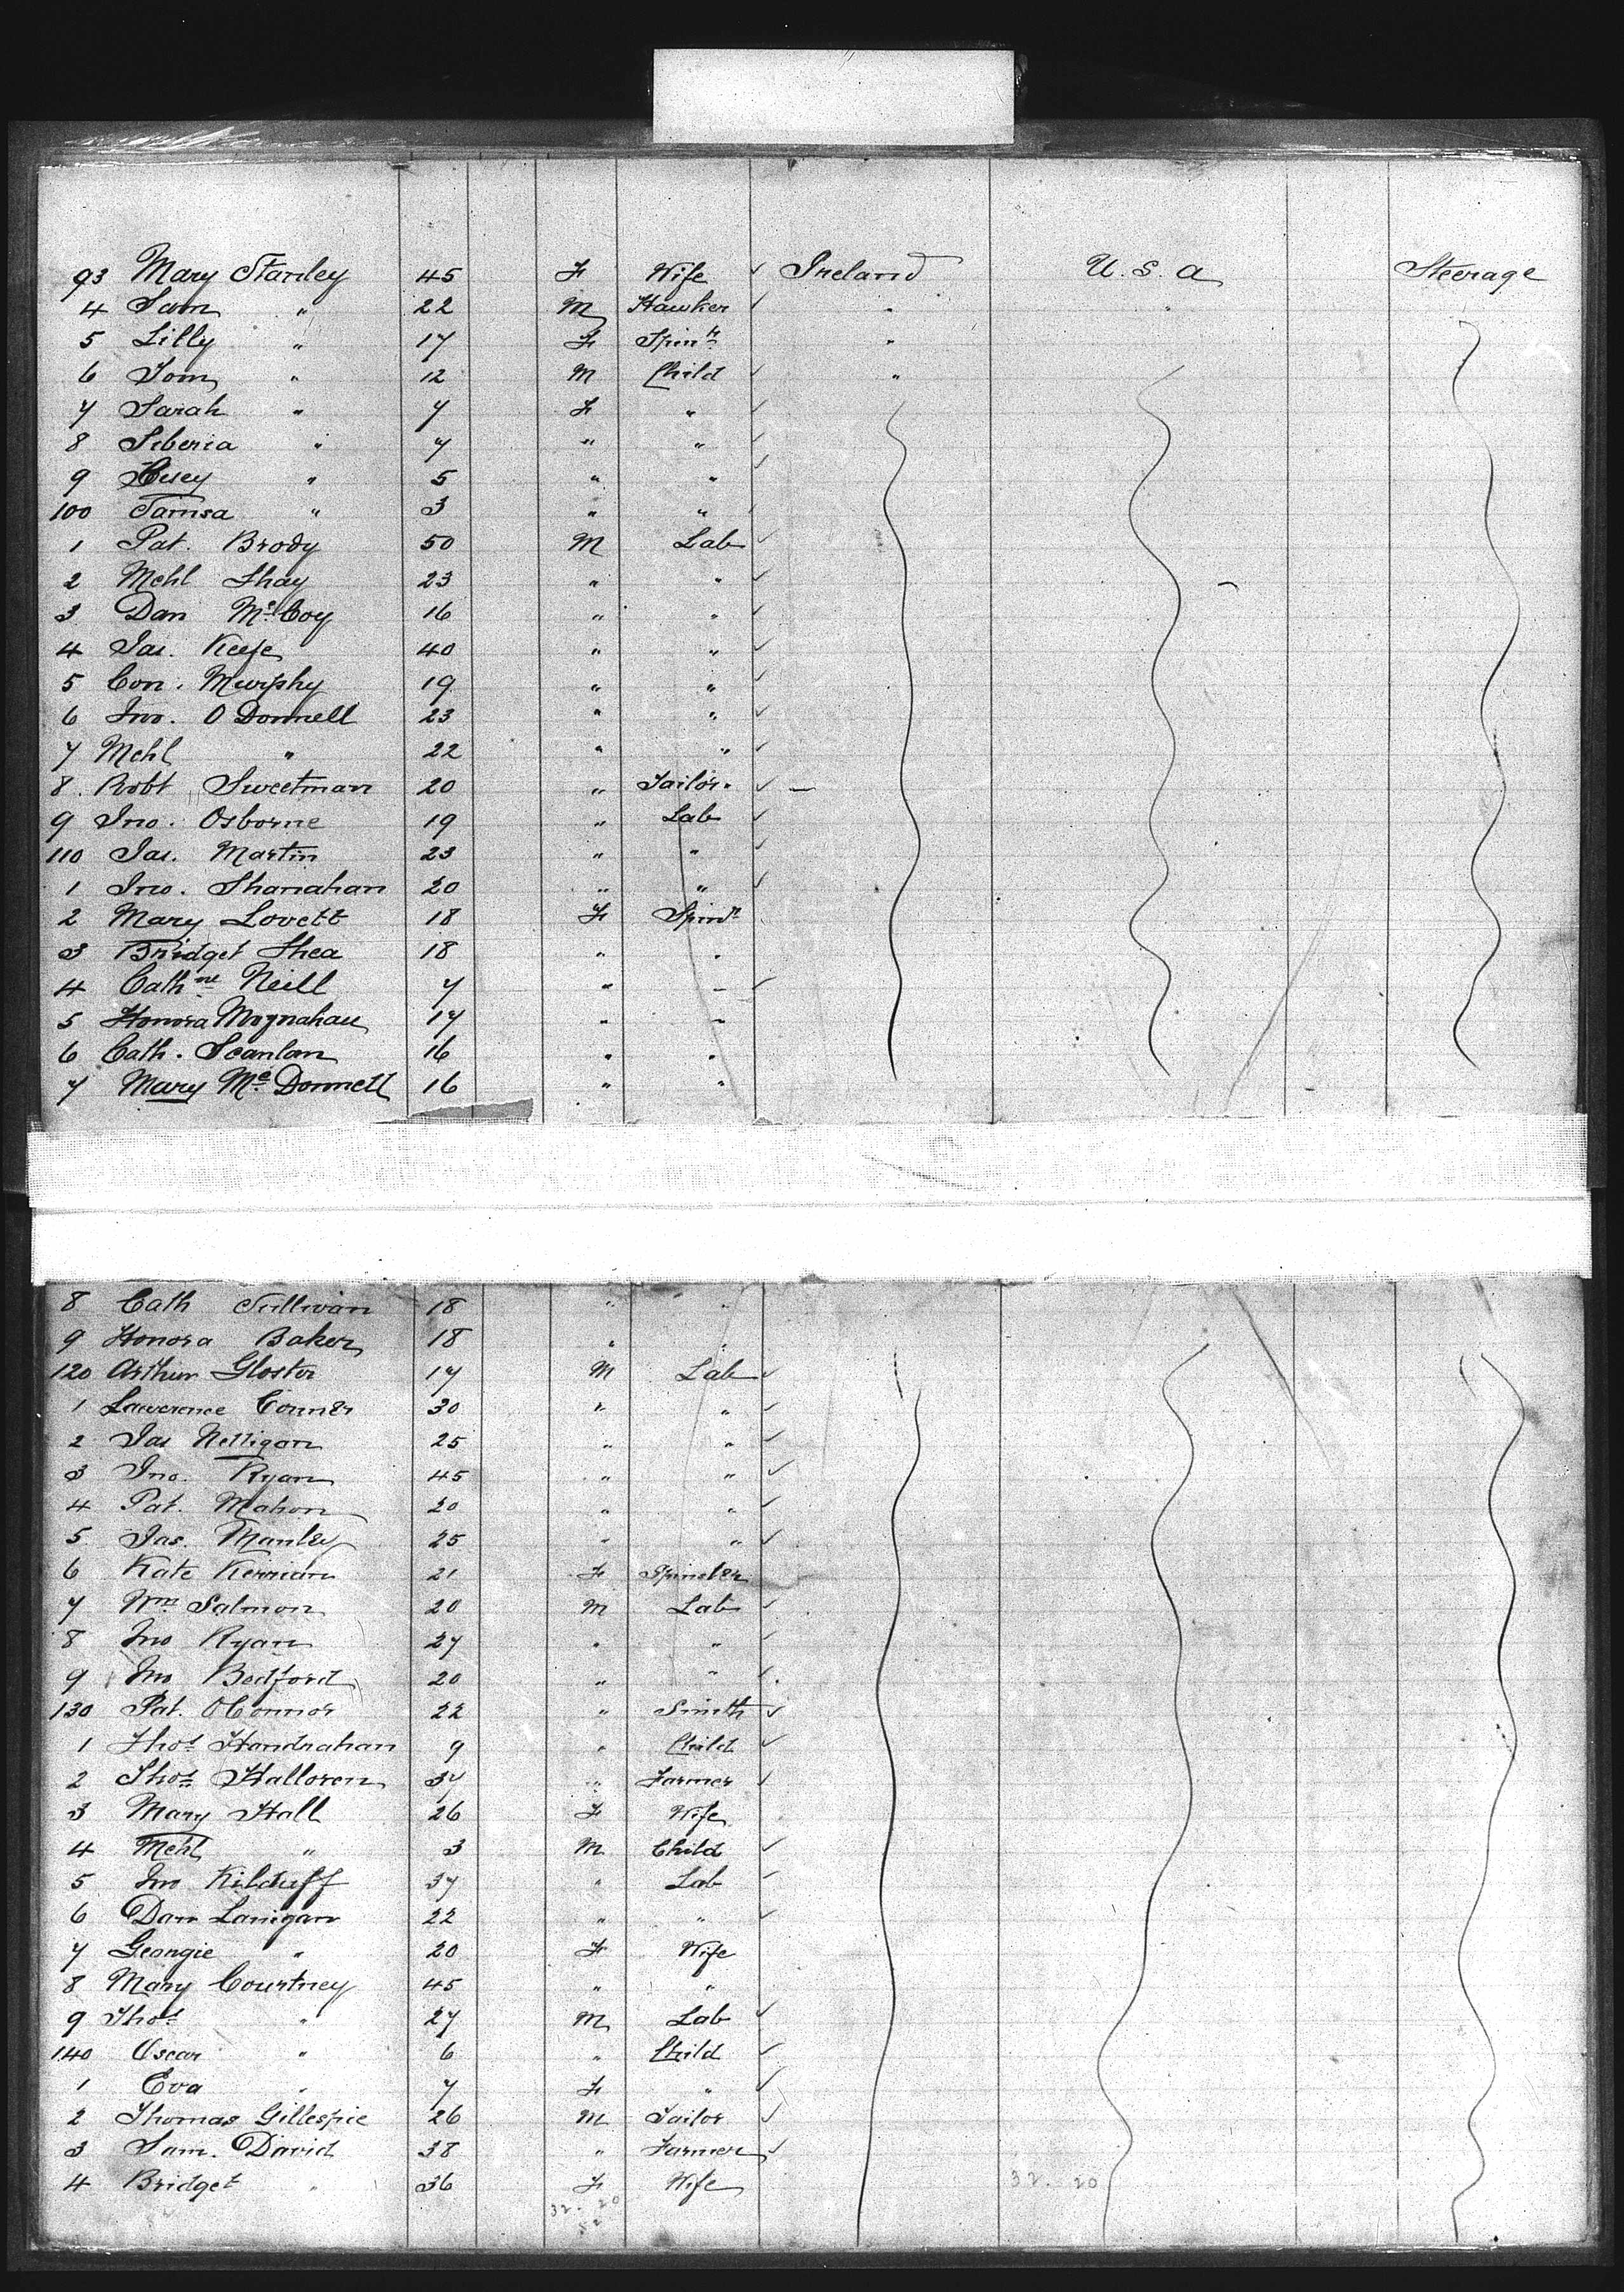 93 Mary Stanley 45 F Wife ✓ Ireland U.S.A Steerage
4 Sam " 22 M Hawker ✓ " "
5 Lilly " 17 F Spinr "
6 Tom " 12 M Child ✓ "
7 Sarah " 7 F " ✓
8 Siberia " 7 " " ✓
9 " 5 " " ✓
100 Tamsa " 3 " "
1 Pat. Brody 50 M Lab ✓
2 Mchl Shay 23 " " ✓
3 Dan McCoy 16 " " ✓
4 Jas. Keefe 40 " " ✓
5 Con. Murphy 19 " " ✓
6 Jno. O Donnell 23 " " ✓
7 Mchl " 22 " " ✓
8. Robt Sweetman 20 " Tailor ✓
9 Jno. Osborne 19 " Lab ✓
110 Jas. Martin 23 " " ✓
1 Jno. Shanahan 20 " " ✓
2 Mary Lovett 18 F Spinr
3 Bridget Shea 18 " "
4 Cathne Neill 7 " " ✓
5 Honora Moynahan 17 " "
6 Cath. Scanlan 16 " "
7 Mary McDonnell 16 " "
8 Cath Sullivan 18 " "
9 Honora Baker 18 " "
120 Arthur Gloster 17 M Lab ✓
1 Lawerence Conner 30 " " ✓
2 Jas Nelligan 25 " " ✓
3 Jno. Ryan 45 " " ✓
4 Pat. Mahon 20 " " ✓
5 Jas. Manley 25 " " ✓
6 Kate 21 F Spinster
7 Wm Salmon 20 M Lab ✓
8 Jno Ryan 27 " " ✓
9 Jno Bedford 20 " " ✓
130 Pat. OConnor 22 " Smith ✓
1 Thos Handrahan 9 " Child ✓
2 Thos Halloren 37 " Farmer ✓
3 Mary Hall 26 F Wife
4 Mchl " 3 M Child ✓
5 Jno Kilduff 37 " Lab ✓
6 Dan Lanigan 22 " " ✓
7 Georgie " 20 F Wife
8 Mary Courtney 45 " "
9 Thos " 27 M Lab ✓
140 Oscar " 6 " Child ✓
1 Eva " 7 F " ✓
2 Thomas Gillespie 26 M Tailor ✓
3 Sam. David 38 " Farmer ✓
4 Bridget " 36 F Wife
32 - 20 32 - 20
52